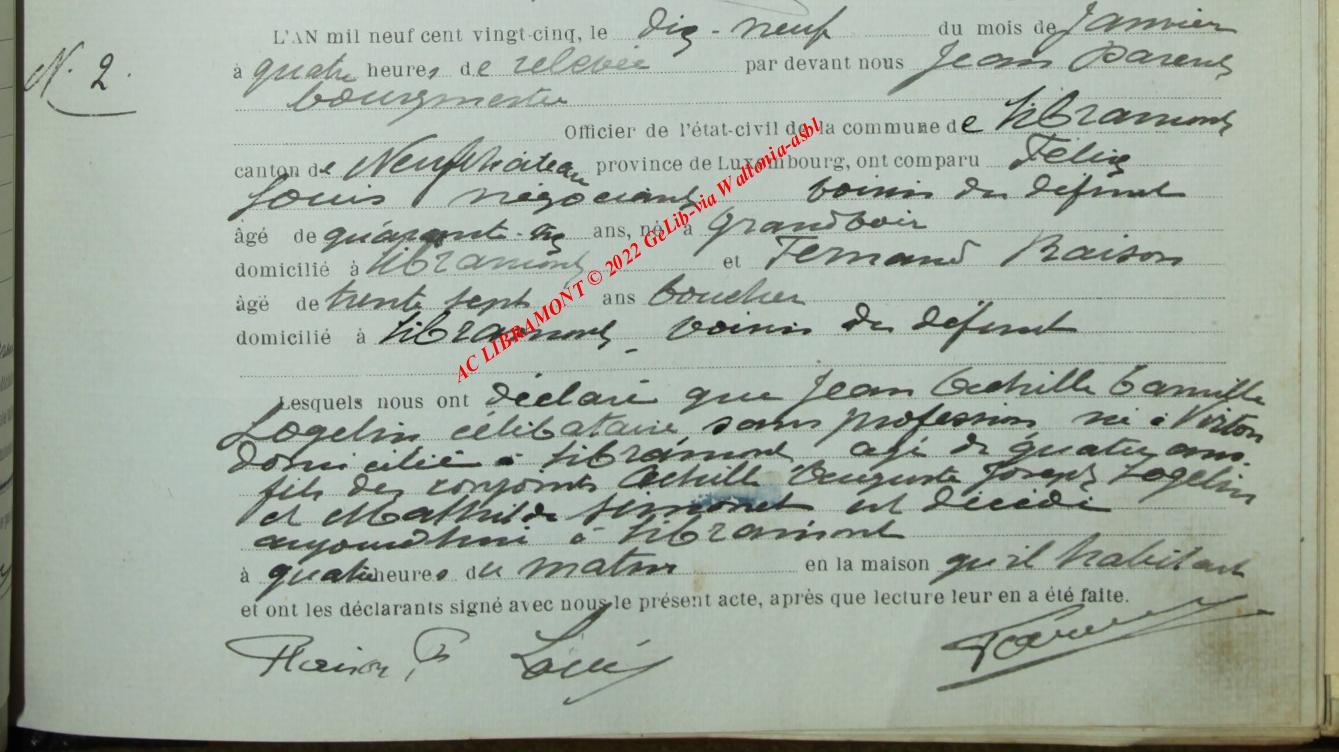 N. 2.
L'AN mil neuf cent vingt-cinq, le dix-neuf du mois de Janvier
à quatre heures de relevée par devant nous Jean Parent
bourgmestre
Officier de l'état-civil de la commune de Libramont
canton de Neufchâteau province de Luxembourg, ont comparu Félix
Louis négociant voisin du défunt
âgé de quarante- ans, né à Grandvoir
domicilié à Libramont et Fernand Raison
âgé de trente sept ans boucher
domicilié à Libramont, voisin du défunt
Lesquels nous ont déclaré que Jean Achille Camille
Logelin célibataire sans profession né à Virton
domicilié à Libramont agé de quatre ans
fils des conjoints Achille Auguste Joseph Logelin
et Mathilde Simonet est décédé
aujourd'hui à Libramont
à quatre heures du matin en la maison qu'il habitait
et ont les déclarants signé avec nous le présent acte, après que lecture leur en a été faite.
Raison F Louis Parent
AC LIBRAMONT © 2022 GeLib-via Wallonia-asbl